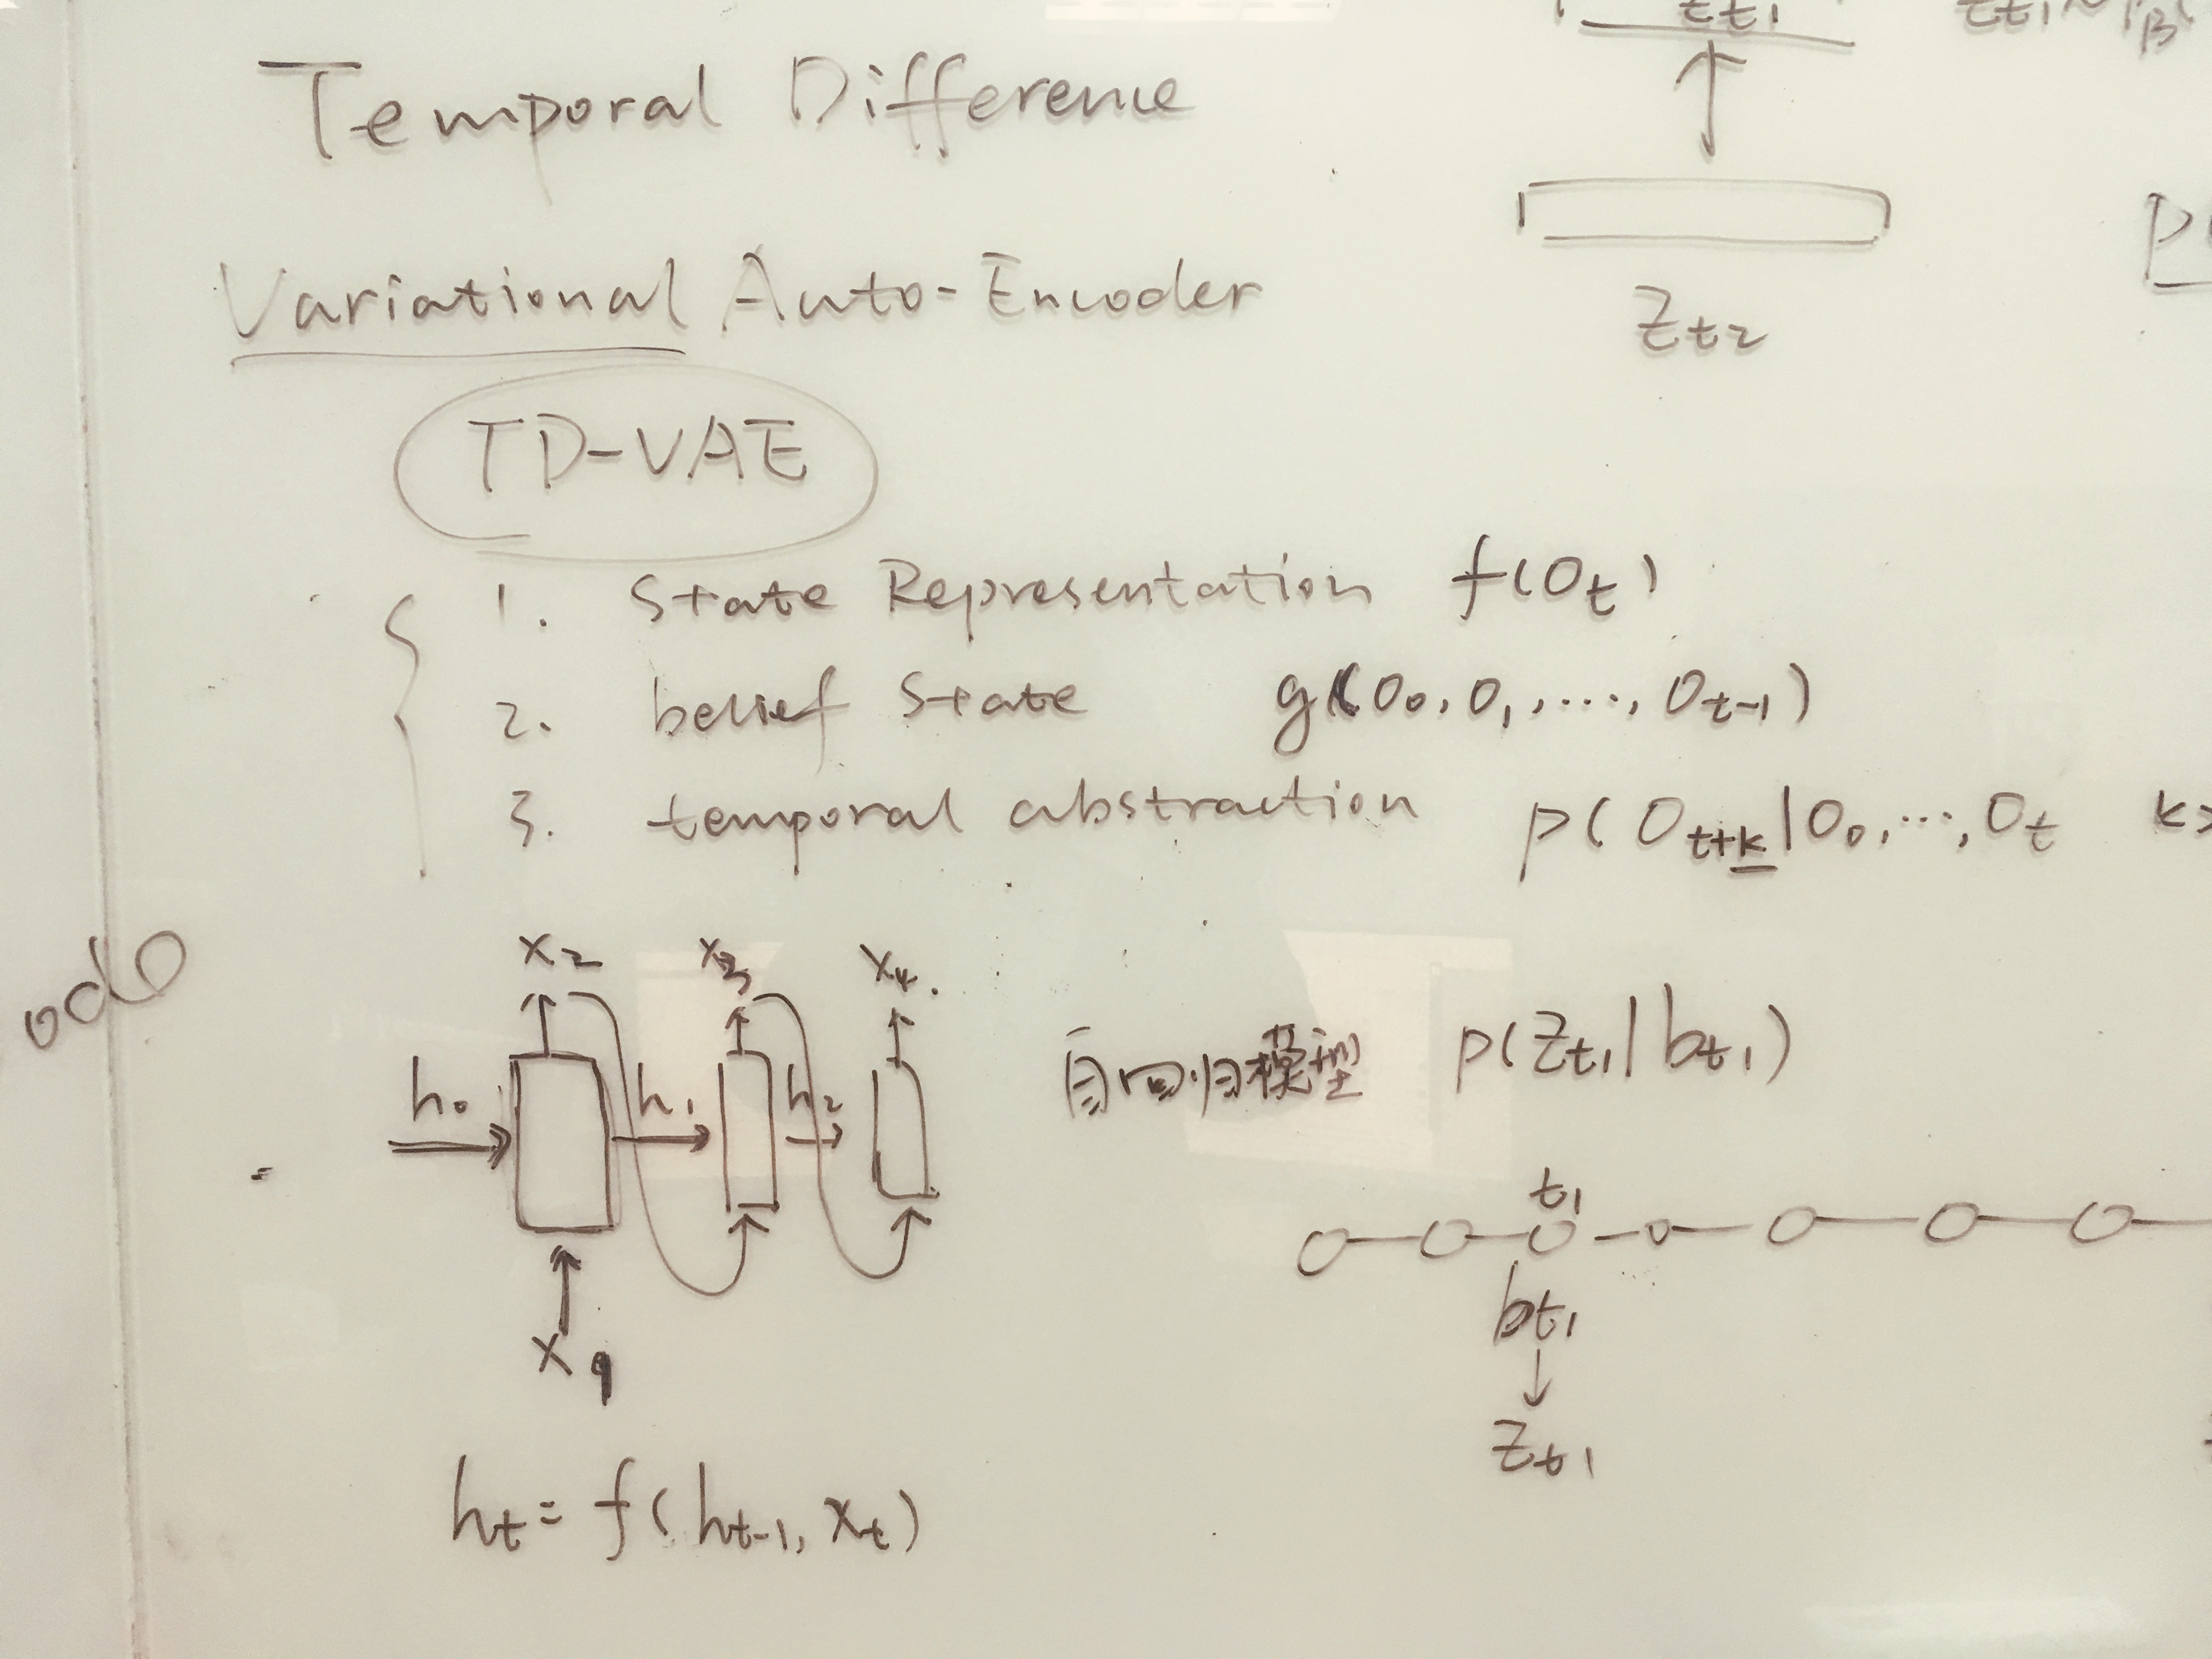 Temporal Difference
Variational Auto-Encoder
TD-VAE
1. State Representation f(O_t)
2. belief state g(O_0, O_1, ..., O_{t-1})
3. temporal abstraction p(O_{t+k}|O_0, ..., O_t k>
z_{t1}
z_{t2}
x_2 x_3 x_4
h_0 h_1 h_2
x_1
h_t = f(h_{t-1}, x_t)
自回归模型 p(z_{t1}|b_{t1})
t_1
b_{t1}
z_{t1}